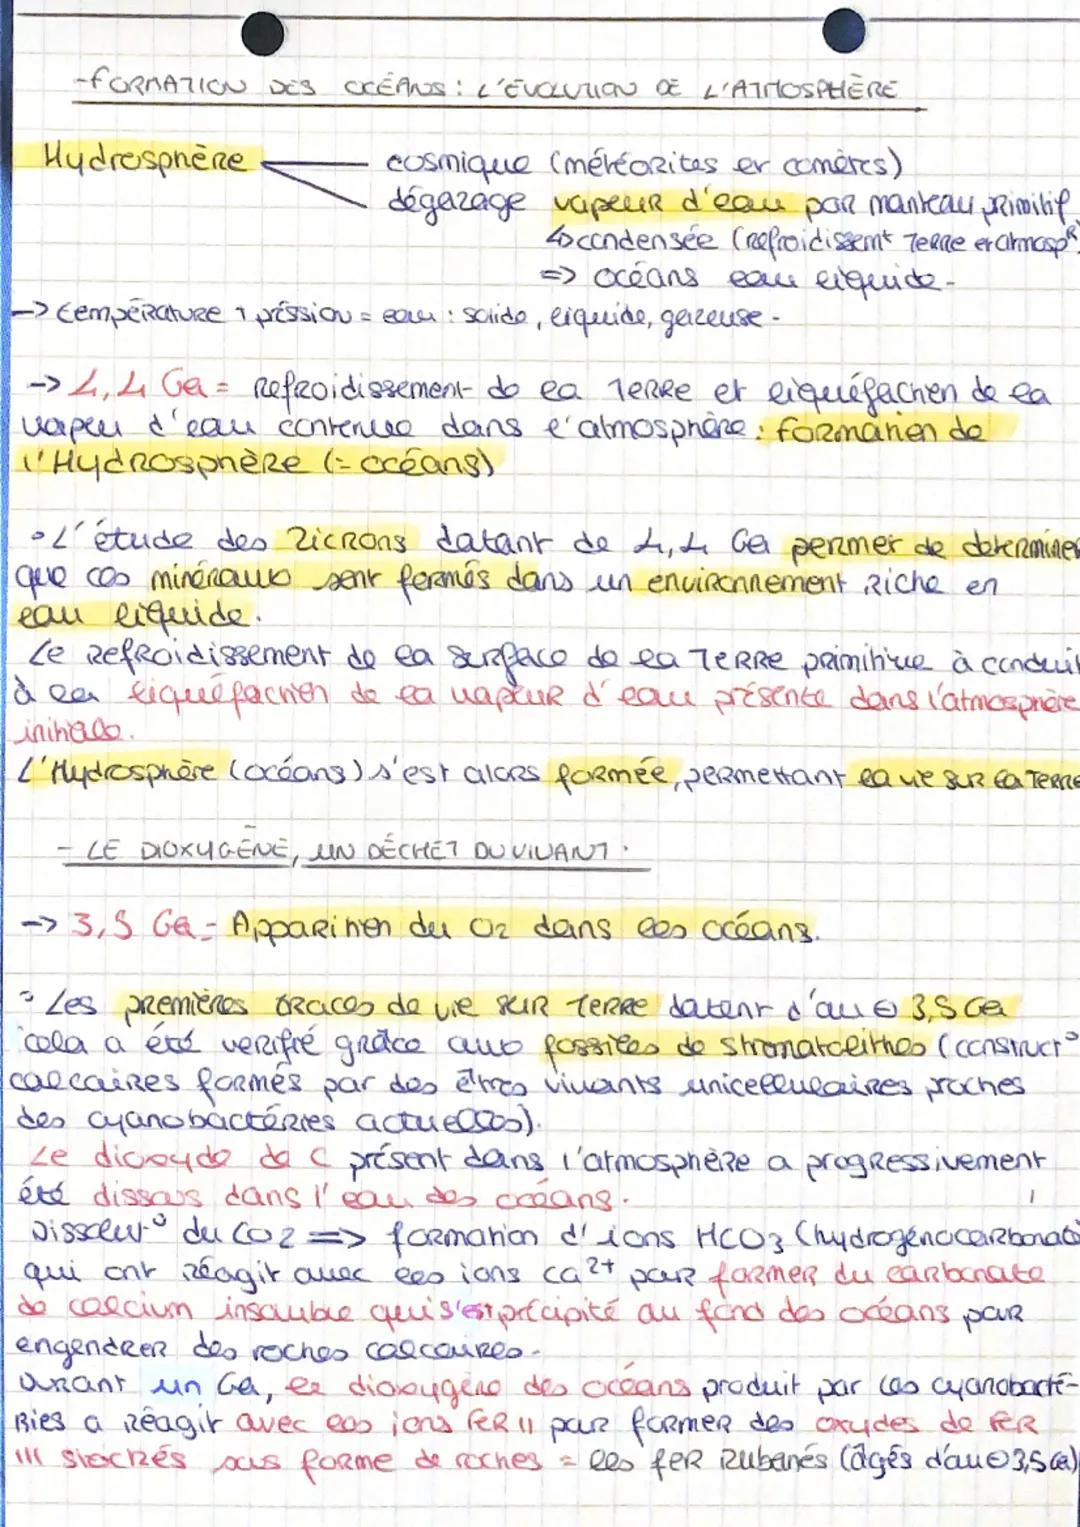 -FORMATION DES OCÉANS : L'ÉVOLUTION DE L'ATMOSPHÈRE
Hydrosphère cosmique (météorites et comètes)
dégazage vapeur d'eau par manteau primitif
↳condensée (refroidissemt Terre et atmospR)
=> océans eau liquide-
-> température + préssion = eau : solide, liquide, gazeuse-
-> 4,4 Ga = Refroidissement de la Terre et liquéfaction de la
vapeu d'eau contenue dans l'atmosphère : formation de
l'Hydrosphère (= océans)
° L'étude des Zicrons datant de 4,4 Ga permet de déterminer
que ces minéraux sont formés dans un environnement riche en
eau liquide.
Le refroidissement de la surface de la Terre primitive à conduit
à la liquéfaction de la vapeur d'eau présente dans l'atmosphère
initiale.
L'Hydrosphère (océans) s'est alors formée, permettant la vie sur la Terre
- LE DIOXYGÈNE, UN DÉCHET DU VIVANT.
-> 3,5 Ga = Apparition du O2 dans les océans.
° Les premières traces de vie sur Terre datent d'au ⊖ 3,5 Ga
cela a été verifié grâce aux fossiles de stromatolithes (construct°
calcaires formés par des êtres vivants unicellulaires proches
des cyanobactéries actuelles).
Le dioxyde de C présent dans l'atmosphère a progressivement
été dissous dans l'eau des océans.
Dissolut° du CO2 => formation d'ions HCO3 (hydrogénocarbonate
qui ont réagit avec les ions Ca2+ pour former du carbonate
de calcium insoluble qui s'est précipité au fond des océans pour
engendrer des roches calcaires-
Durant un Ga, le dioxygène des océans produit par les cyanobacté-
ries a réagit avec les ions fer II pour former des oxydes de fer
III stockés sous forme de roches = les fer rubanés (âgés d'au ⊖ 3,5 Ga)